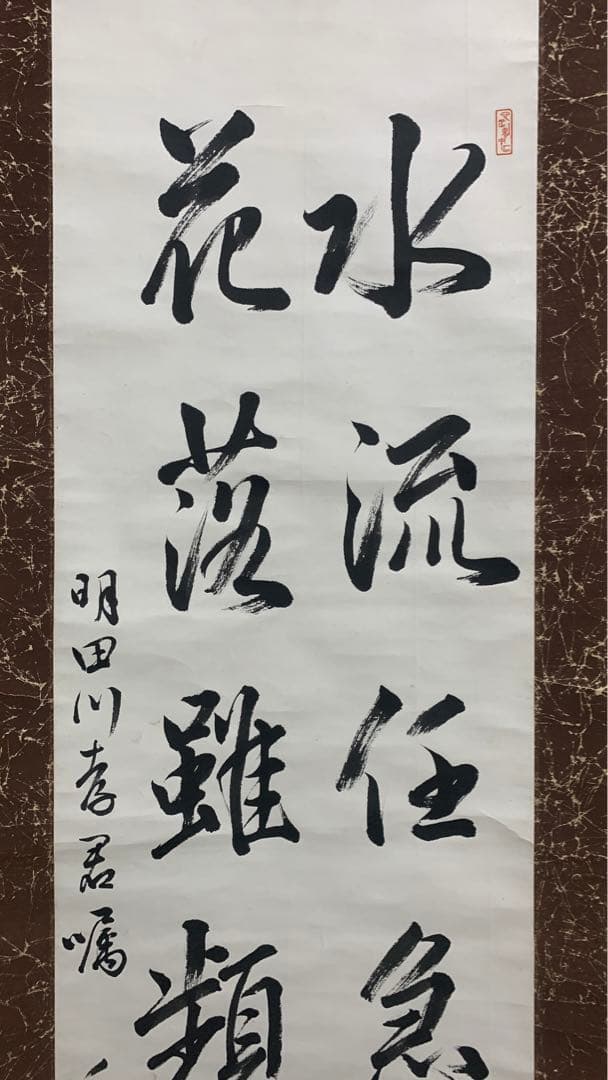 水流任急
花落雖頻
明田川孝君嘱